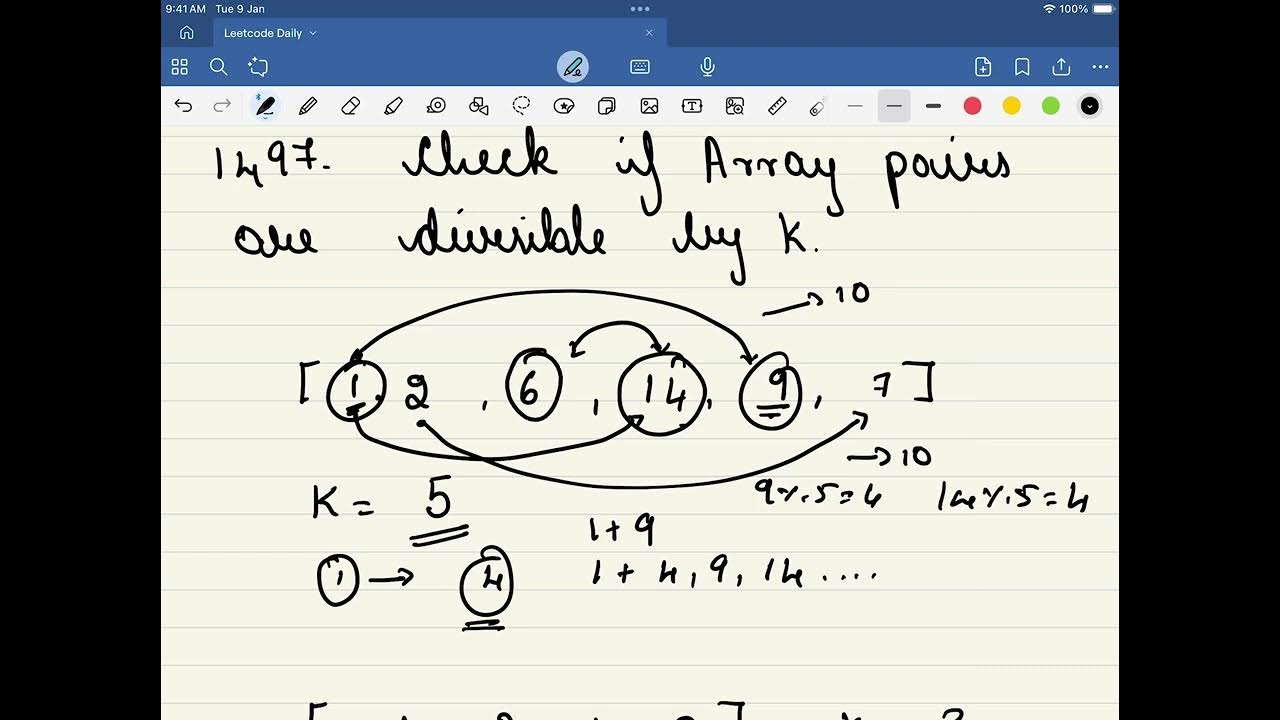 9:41 AM Tue 9 Jan
100%
Leetcode Daily
1497. Check if Array pairs
are divisible by K.
→ 10
[ 1, 2, 6, 14, 9, 7 ]
→ 10
K = 5
9%5=4 14%5=4
1+9
1 → 4
1+4, 9, 14 ....